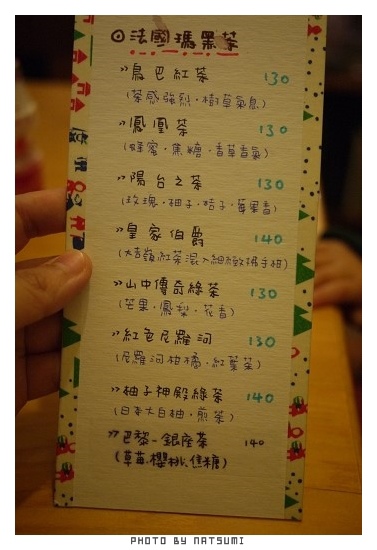 ◎法國瑪黑茶
»鳥巴紅茶 130
(茶感強烈・樹草氣息)
»鳳凰茶 130
(蜂蜜・焦糖・香草香氣)
»陽台之茶 130
(玫瑰・柚子・桔子・莓果香)
»皇家伯爵 140
(大吉嶺紅茶混入細緻佛手柑)
»山中傳奇綠茶 130
(芒果・鳳梨・花香)
»紅色尼羅河 130
(尼羅河柑橘・紅葉茶)
»柚子神殿綠茶 140
(日本大白柚・煎茶)
»巴黎-銀座茶 140
(草莓.櫻桃.焦糖)
PHOTO BY NATSUMI